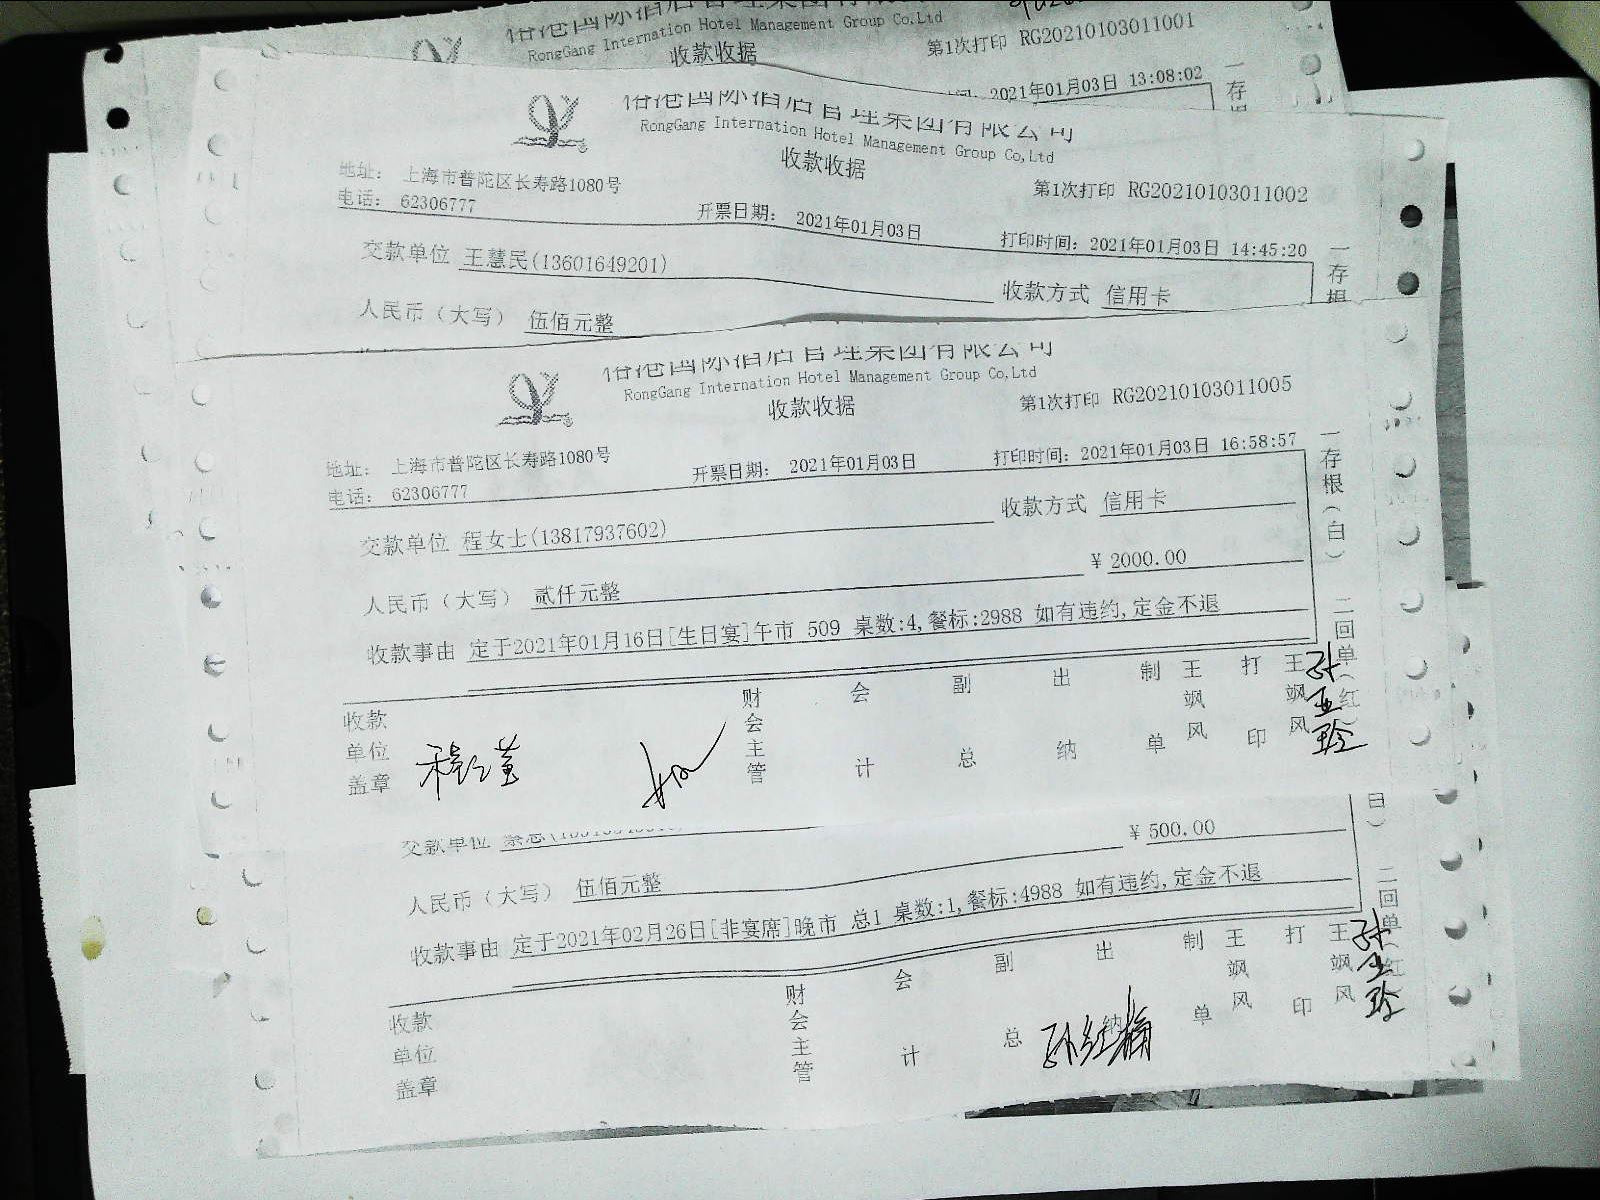 RongGang Internation Hotel Management Group Co,Ltd
收款收据
第1次打印 RG20210103011001
2021年01月03日 13:08:02
一存
俗港国际酒店管理集团有限公司
RongGang Internation Hotel Management Group Co,Ltd
收款收据
地址: 上海市普陀区长寿路1080号
第1次打印 RG20210103011002
电话: 62306777
开票日期: 2021年01月03日
打印时间: 2021年01月03日 14:45:20
交款单位 王慧民(13601649201)
收款方式 信用卡
一存根
人民币（大写） 伍佰元整
RongGang Internation Hotel Management Group Co,Ltd
收款收据
第1次打印 RG20210103011005
地址: 上海市普陀区长寿路1080号
电话: 62306777
开票日期: 2021年01月03日
打印时间: 2021年01月03日 16:58:57
交款单位 程女士(13817937602)
收款方式 信用卡
一存根(白) 二回单(红)
人民币（大写） 贰仟元整
¥ 2000.00
收款事由 定于2021年01月16日[生日宴]午市 509 桌数:4,餐标:2988 如有违约,定金不退
收款单位盖章
财会主管
会计
副总
出纳
制单
王飒风
打印
王飒风
交款单位
¥ 500.00
人民币（大写） 伍佰元整
白) 二回单(红
收款事由 定于2021年02月26日[非宴席]晚市 总1 桌数:1,餐标:4988 如有违约,定金不退
收款单位盖章
财会主管
会计
副总
出纳
孙红梅
制单
王飒风
打印
王飒风